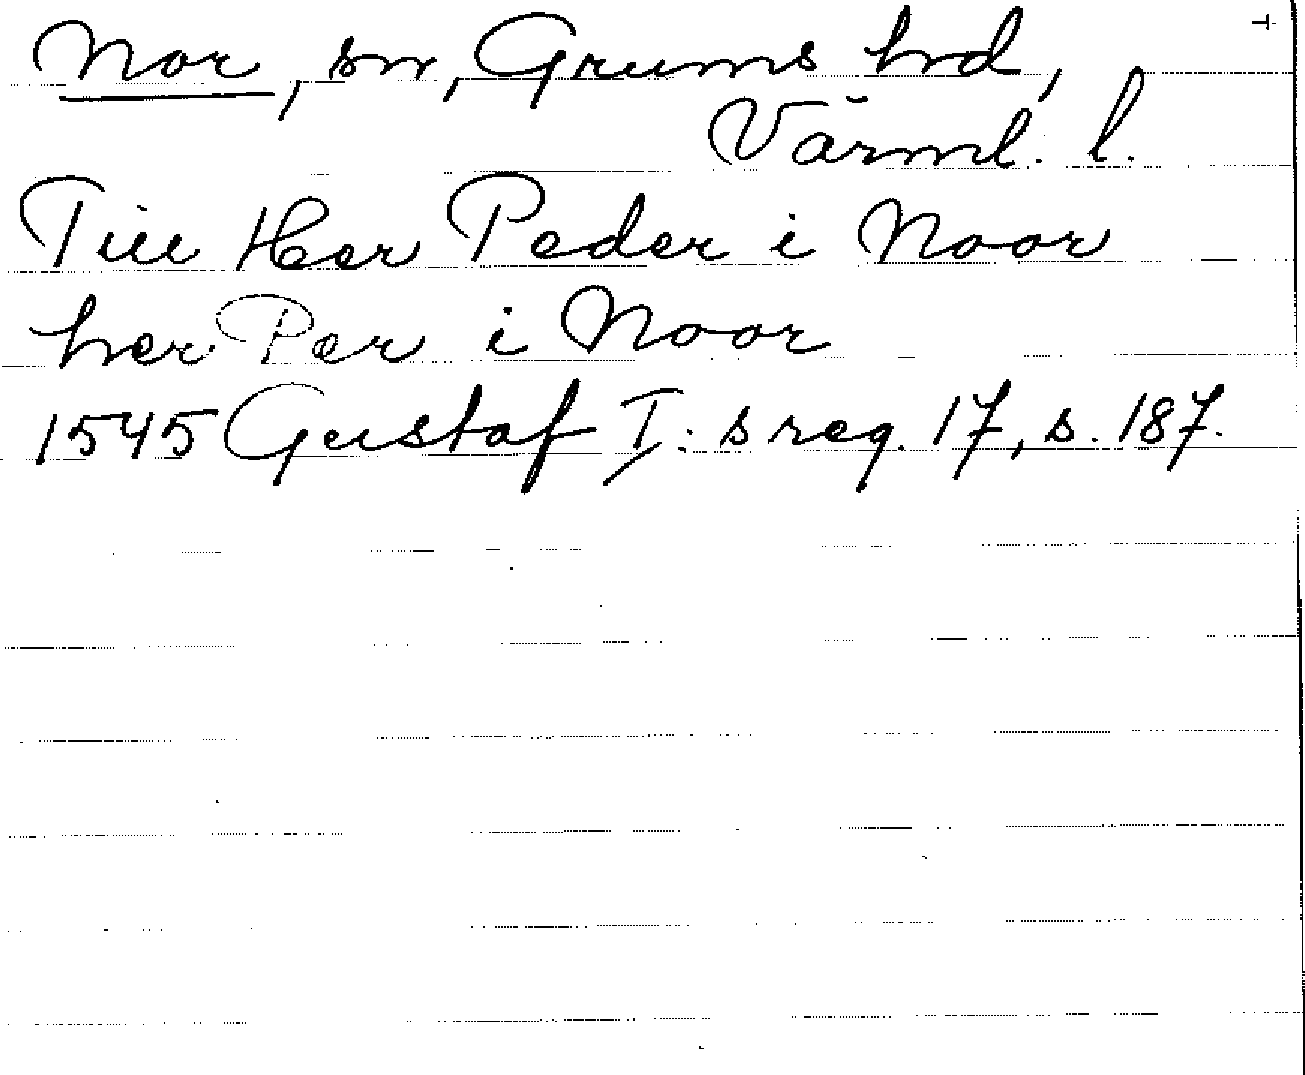 Nor, sn, Grums hd,
Värml. l.
Till Her Peder i Noor
her Per i Noor
1545 Gustaf I:s reg. 17, s. 187.